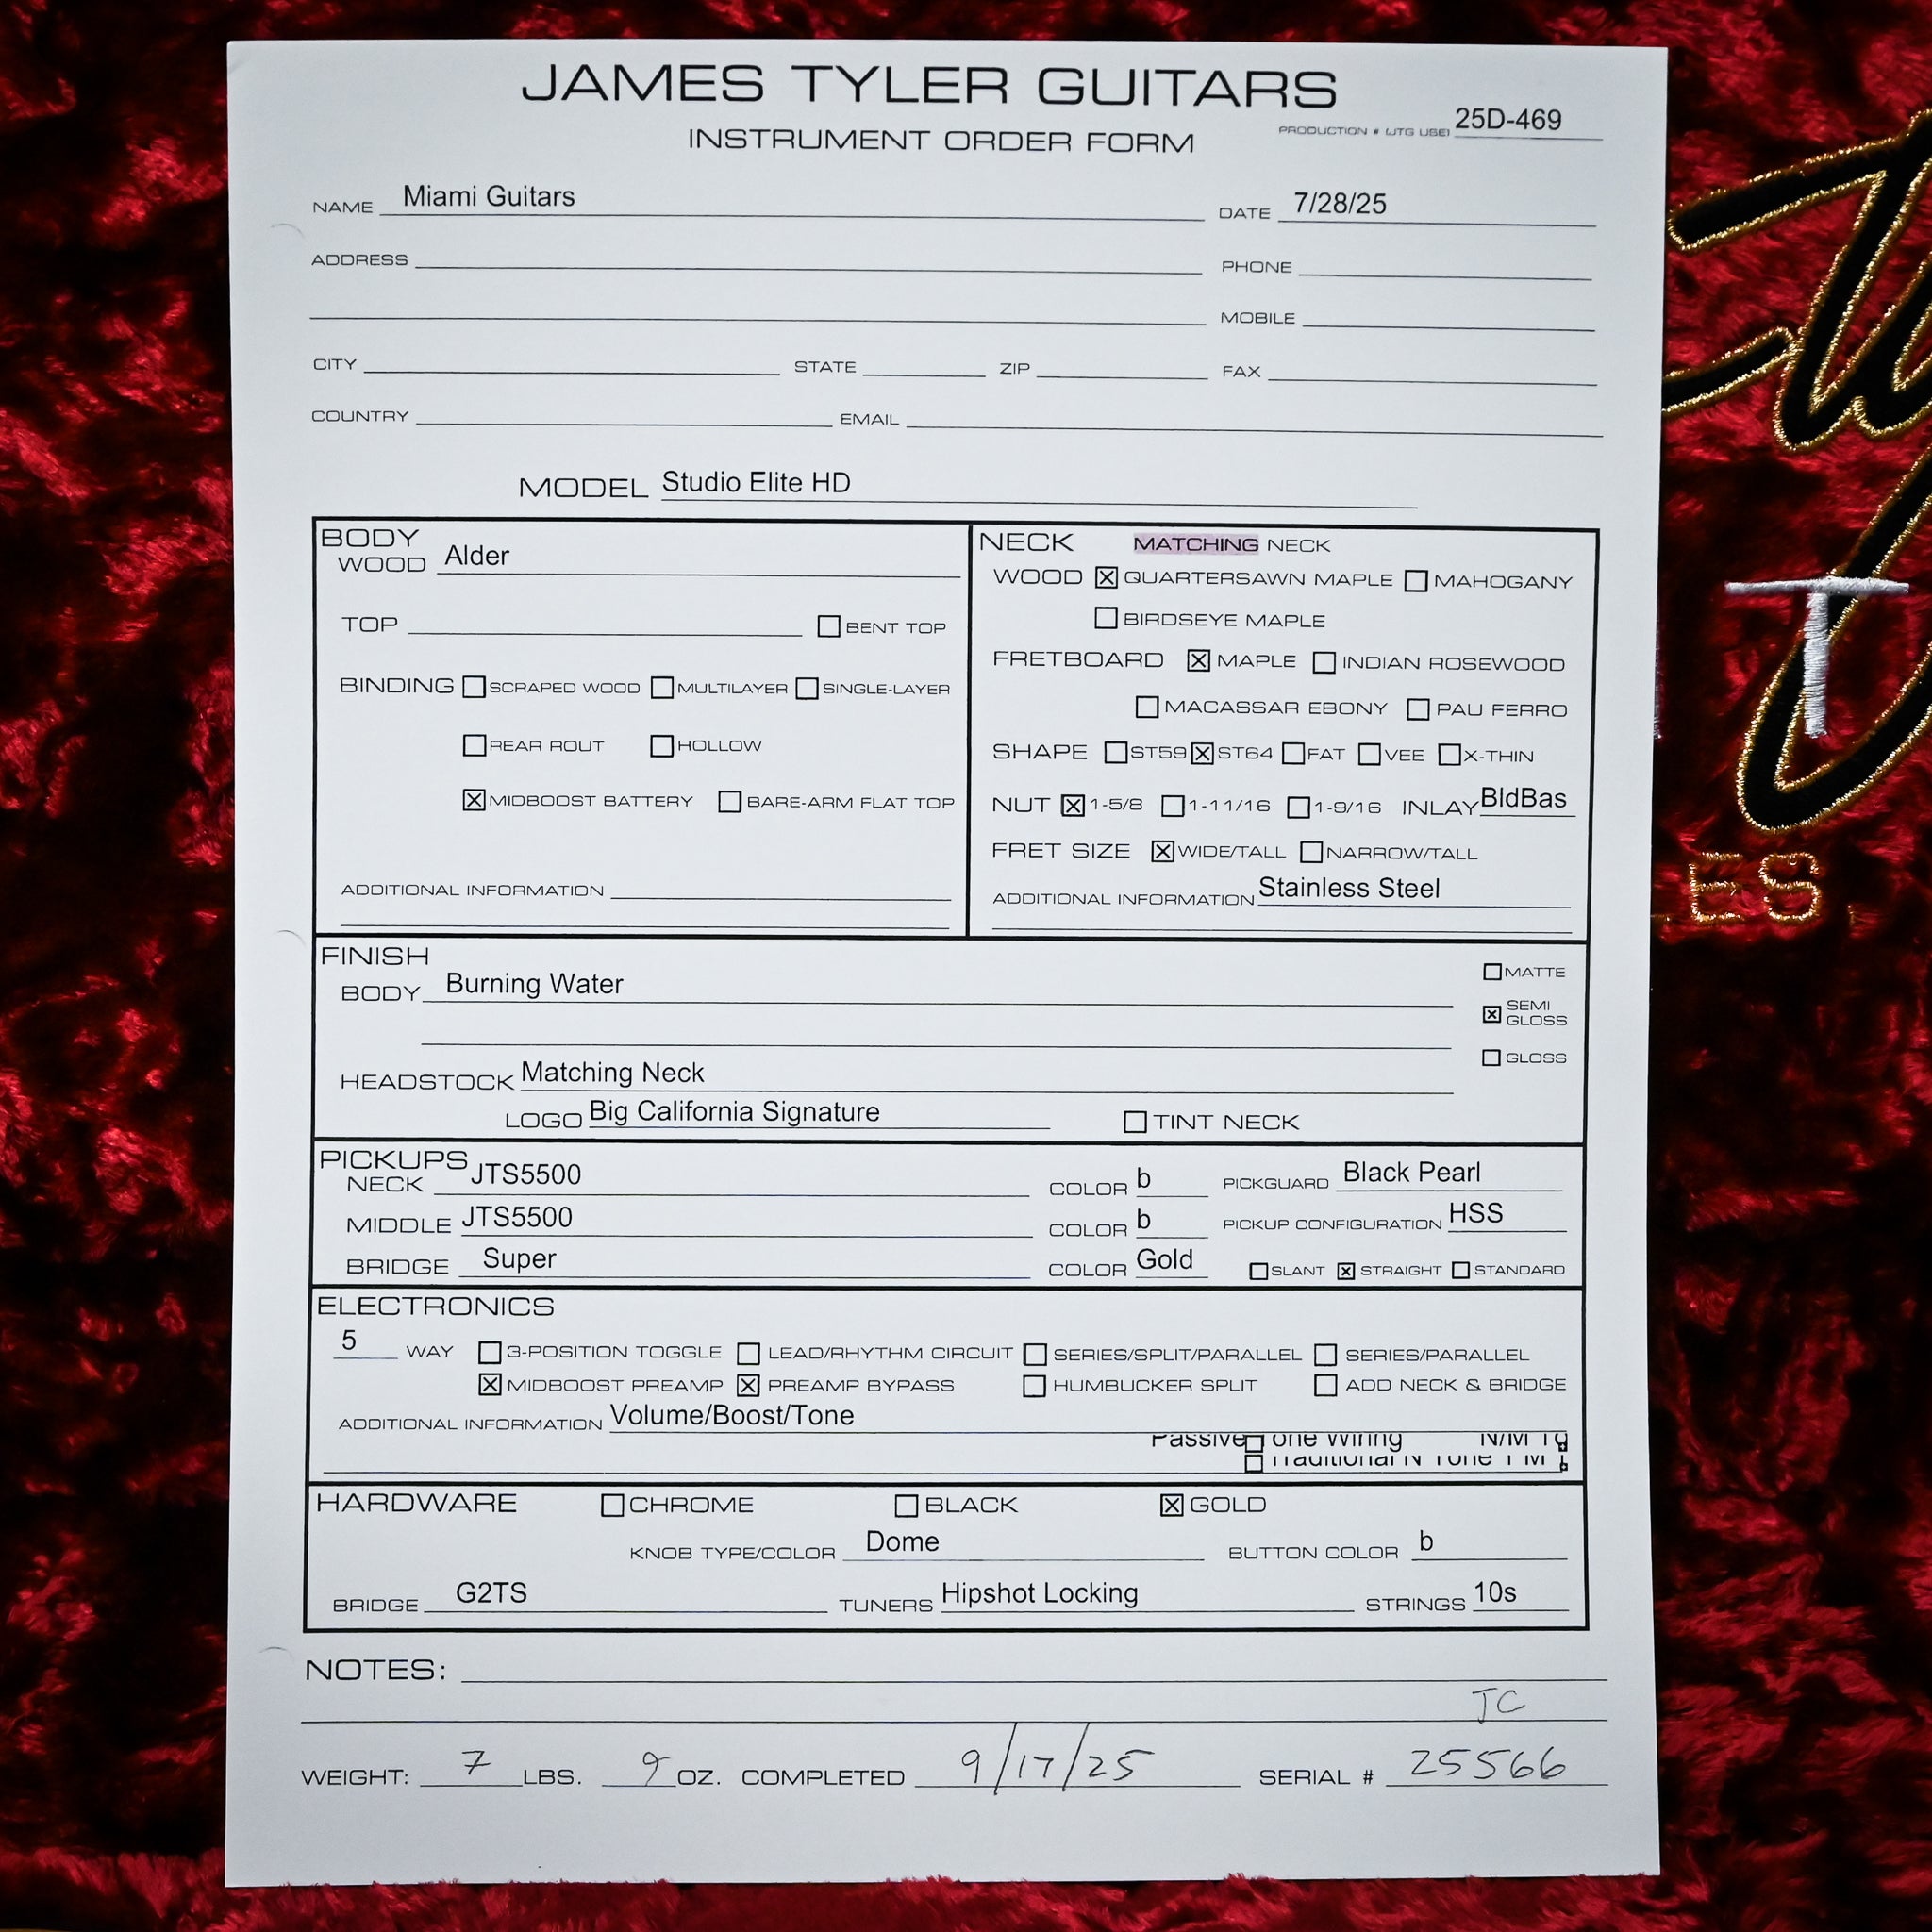 JAMES TYLER GUITARS
INSTRUMENT ORDER FORM
PRODUCTION # (JTG USE) 25D-469
NAME Miami Guitars DATE 7/28/25
ADDRESS PHONE
MOBILE
CITY STATE ZIP FAX
COUNTRY EMAIL
MODEL Studio Elite HD
BODY
WOOD Alder
TOP ☐ BENT TOP
BINDING ☐ SCRAPED WOOD ☐ MULTILAYER ☐ SINGLE-LAYER
☐ REAR ROUT ☐ HOLLOW
☒ MIDBOOST BATTERY ☐ BARE-ARM FLAT TOP
ADDITIONAL INFORMATION
NECK MATCHING NECK
WOOD ☒ QUARTERSAWN MAPLE ☐ MAHOGANY
☐ BIRDSEYE MAPLE
FRETBOARD ☒ MAPLE ☐ INDIAN ROSEWOOD
☐ MACASSAR EBONY ☐ PAU FERRO
SHAPE ☐ ST59 ☒ ST64 ☐ FAT ☐ VEE ☐ X-THIN
NUT ☒ 1-5/8 ☐ 1-11/16 ☐ 1-9/16 INLAY BldBas
FRET SIZE ☒ WIDE/TALL ☐ NARROW/TALL
ADDITIONAL INFORMATION Stainless Steel
FINISH
BODY Burning Water
☐ MATTE
☒ SEMI GLOSS
☐ GLOSS
HEADSTOCK Matching Neck
LOGO Big California Signature ☐ TINT NECK
PICKUPS
NECK JTS5500 COLOR b PICKGUARD Black Pearl
MIDDLE JTS5500 COLOR b PICKUP CONFIGURATION HSS
BRIDGE Super COLOR Gold ☐ SLANT ☒ STRAIGHT ☐ STANDARD
ELECTRONICS
5 WAY ☐ 3-POSITION TOGGLE ☐ LEAD/RHYTHM CIRCUIT ☐ SERIES/SPLIT/PARALLEL ☐ SERIES/PARALLEL
☒ MIDBOOST PREAMP ☒ PREAMP BYPASS ☐ HUMBUCKER SPLIT ☐ ADD NECK & BRIDGE
ADDITIONAL INFORMATION Volume/Boost/Tone
Passive Wiring
HARDWARE ☐ CHROME ☐ BLACK ☒ GOLD
KNOB TYPE/COLOR Dome BUTTON COLOR b
BRIDGE G2TS TUNERS Hipshot Locking STRINGS 10s
NOTES:
JC
WEIGHT: 7 LBS. 9 OZ. COMPLETED 9/17/25 SERIAL # 25566
T
ES